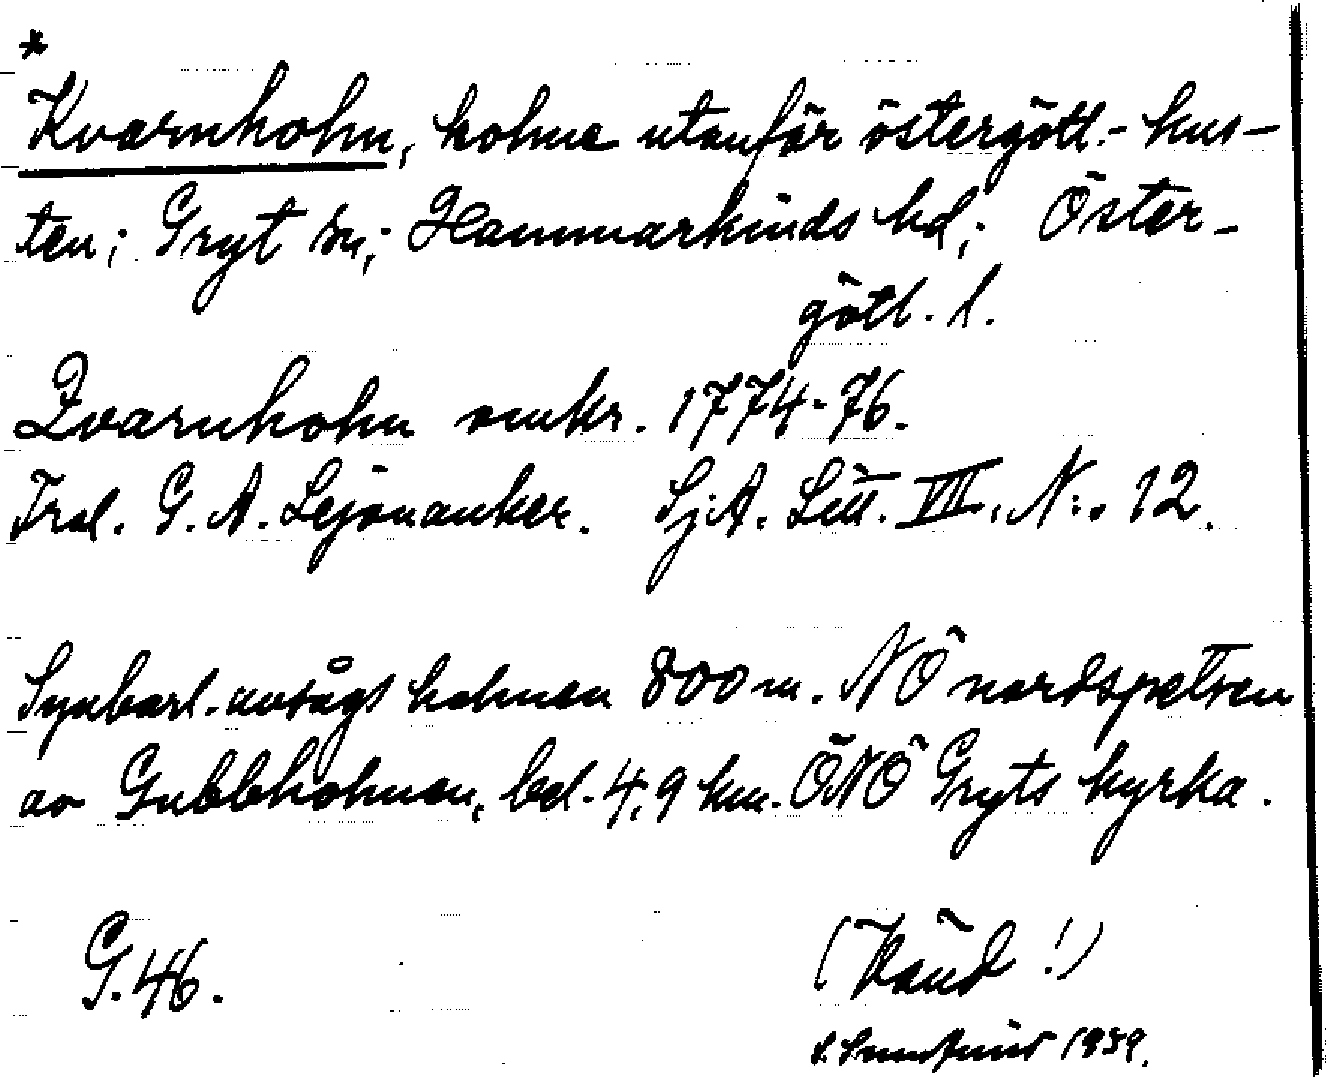 *
Kvarnholm, holme utanför östergötl.- kus-
ten; Gryt sn; Hammarkinds hd; Öster-
götl. l.
Qvarnholm omkr. 1774-76.
Trol. G. A. Lejonanker. SjA. Litt. VIII. N:. 12.
Synbarl. avsågs holmen 800 m. NÖ nordspetsen
av Gubbholmen, bel. 4,9 km. ÖNÖ Gryts kyrka.
G. 46. (Känd!)
1939.